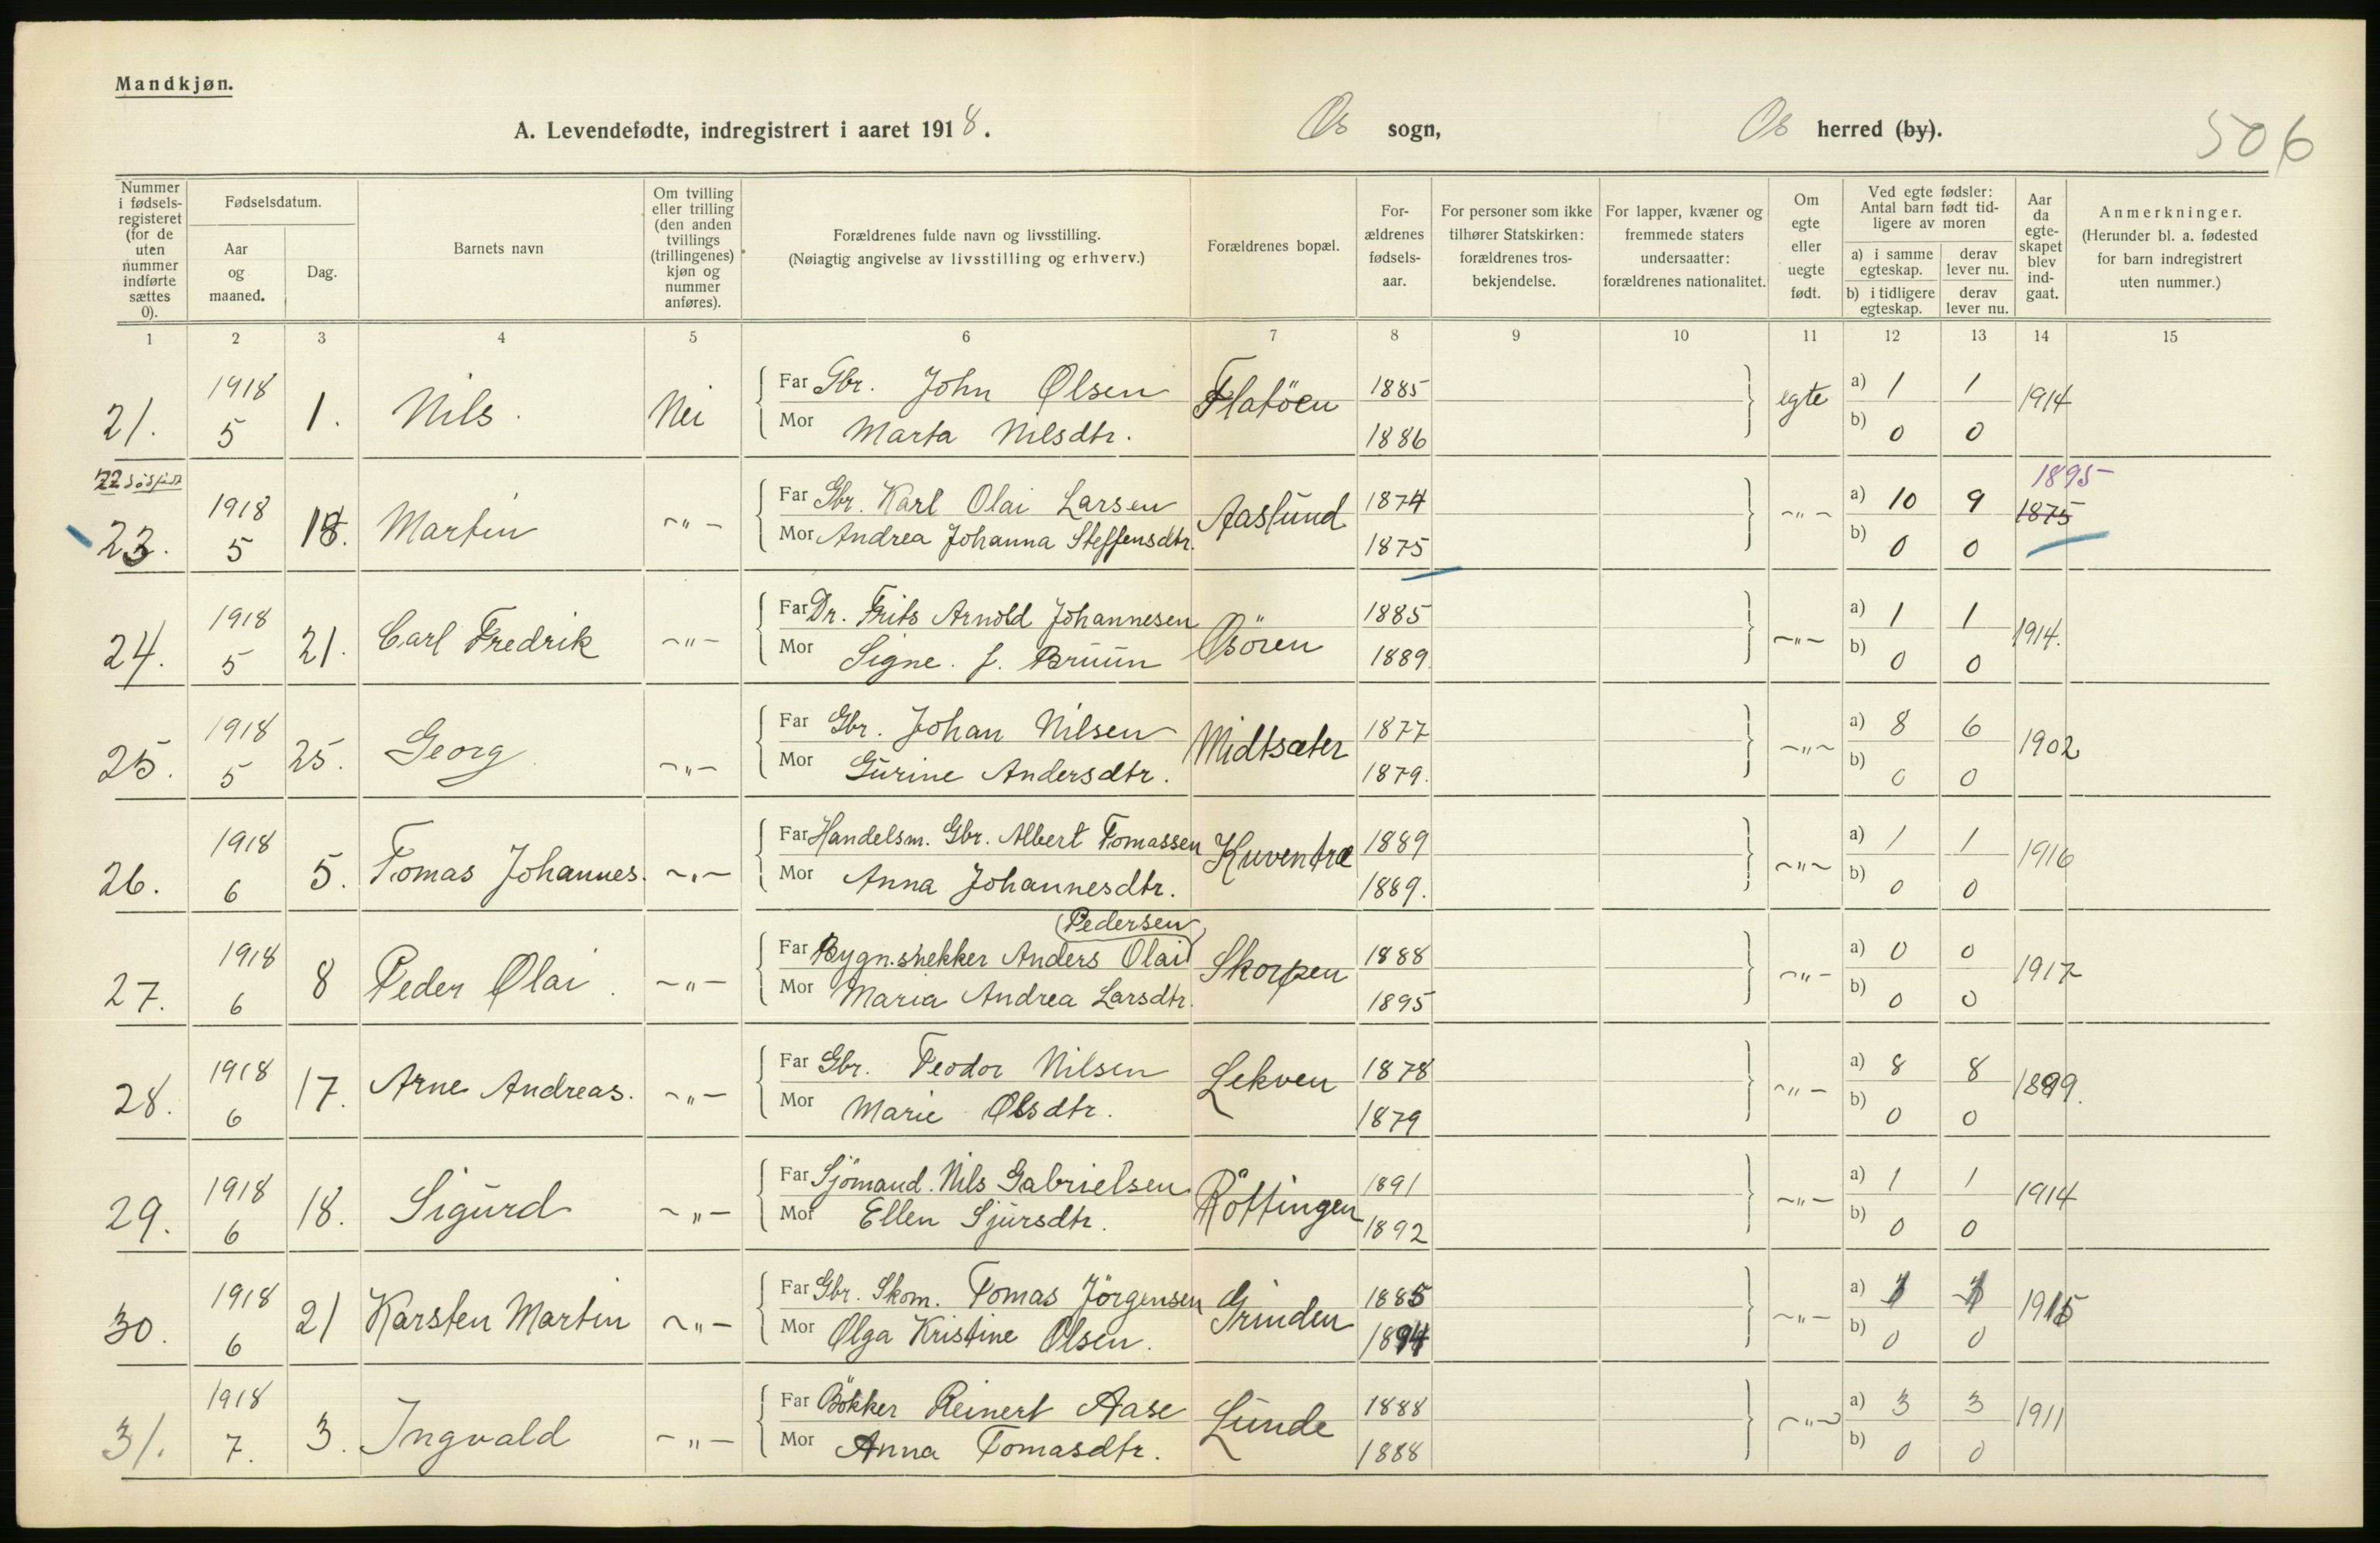 Mandkjøn.
A. Levendefødte, indregistrert i aaret 1918. Os sogn, Os herred (by). 506
Nummer i fødselsregisteret (for de uten nummer indførte sættes 0).
Fødselsdatum.
Aar og maaned.
Dag.
Barnets navn
Om tvilling eller trilling (den anden tvillings (trillingenes) kjøn og nummer anføres).
Forældrenes fulde navn og livsstilling.
(Nøiagtig angivelse av livsstilling og erhverv.)
Forældrenes bopæl.
Forældrenes fødselsaar.
For personer som ikke tilhører Statskirken: forældrenes trosbekjendelse.
For lapper, kvæner og fremmede staters undersaatter: forældrenes nationalitet.
Om egte eller uegte født.
Ved egte fødsler: Antal barn født tidligere av moren
a) i samme egteskap. derav lever nu.
b) i tidligere egteskap. derav lever nu.
Aar da egteskapet blev indgaat.
Anmerkninger.
(Herunder bl. a. fødested for barn indregistrert uten nummer.)
1 2 3 4 5 6 7 8 9 10 11 12 13 14 15
21. 1918 5 1. Nils. Nei Far Gbr. John Olsen Flatöen 1885 egte a) 1 1 1914
Mor Marta Nilsdtr. 1886 b) 0 0
22 dödfödt
23. 1918 5 18. Martin -"- Far Gbr. Karl Olai Larsen Aaslund 1874 -"- a) 10 9 1895 1875
Mor Andrea Johanna Steffensdtr. 1875 b) 0 0
24. 1918 5 21. Carl Fredrik -"- Far Dr. Frits Arnold Johannesen Osören 1885 -"- a) 1 1 1914.
Mor Signe. f. Bruun 1889. b) 0 0
25. 1918 5 25. Georg -"- Far Gbr. Johan Nilsen Midtsæter 1877 -"- a) 8 6 1902
Mor Gurine Andersdtr. 1879. b) 0 0
26. 1918 6 5. Tomas Johannes. -"- Far Handelsm. Gbr. Albert Tomassen Kuventræ 1889 -"- a) 1 1 1916
Mor Anna Johannesdtr. 1889. b) 0 0
Pedersen
27. 1918 6 8 Peder Olai. -"- Far Bygn.snekker Anders Olai Skorpen 1888 -"- a) 0 0 1917
Mor Maria Andrea Larsdtr. 1895 b) 0 0
28. 1918 6 17. Arne Andreas. -"- Far Gbr. Teodor Nilsen Lekven 1878 -"- a) 8 8 1899.
Mor Marie Olsdtr. 1879 b) 0 0
29. 1918 6 18. Sigurd -"- Far Sjömand. Nils Gabrielsen Röttingen 1891 -"- a) 1 1 1914
Mor Ellen Sjursdtr. 1892 b) 0 0
30. 1918 6 21 Karsten Martin -"- Far Gbr. Skom. Tomas Jörgensen Grinden 1885 -"- a) 1 1 1915
Mor Olga Kristine Olsen. 1894 b) 0 0
31. 1918 7. 3. Ingvald -"- Far Bökker Reinert Aase Lunde 1888 -"- a) 3 3 1911
Mor Anna Tomasdtr. 1888 b) 0 0